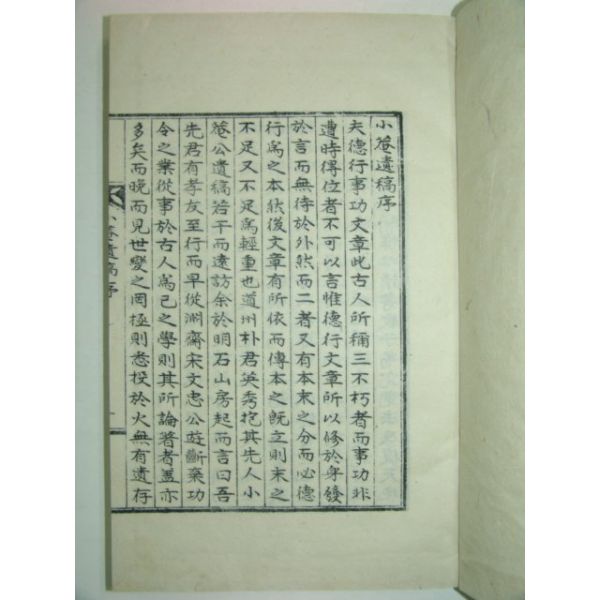 小菴遺稿序
夫德行事功文章此古人所稱三不朽者而事功非
遭時得位者不可以言惟德行文章所以修於身發
於言而無待於外然而二者又有本末之分而必德
行爲之本然後文章有所依而傳本之旣立則末之
不足又不足爲輕重也道州朴君英秀抱其先人小
菴公遺稿若干而遠訪余於明石山房起而言曰吾
先君有孝友至行而早從淵齋宋文忠公遊斷棄功
令之業從事於古人爲己之學則其所論著者蓋亦
多矣而晩而見世變之罔極則悉投於火無有遺存
小菴遺稿序
一